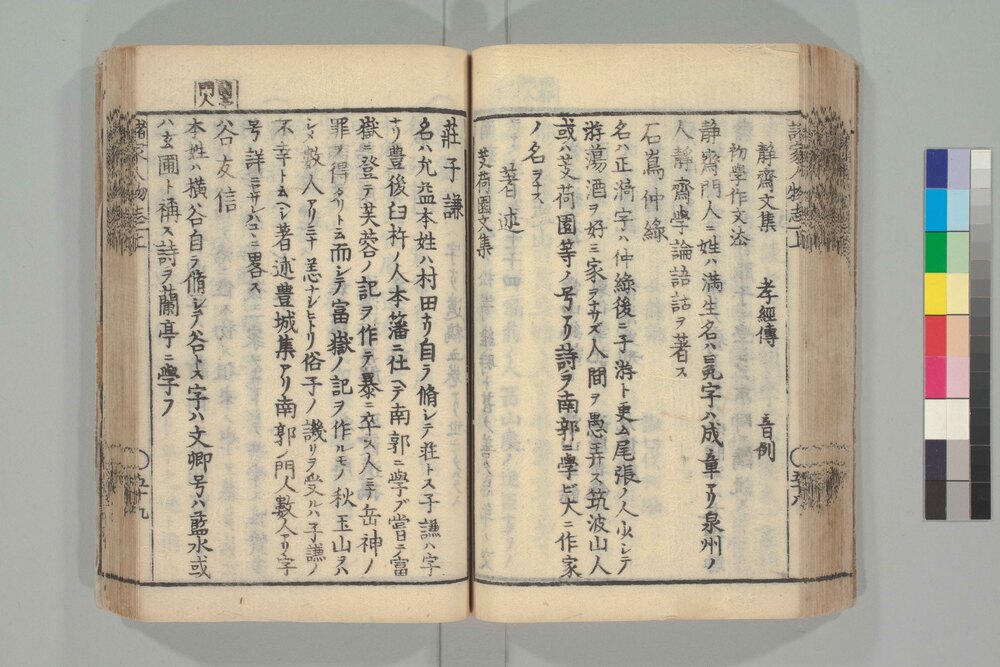 諸家人物志上
五十八
靜齋文集　孝經傳　音例
初學作文法
靜齋門人ニ姓ハ滿生名ハ晃字ハ成章アリ泉州ノ
人靜齋學論語話ヲ著ス
石嶌仲緑
名ハ正漪字ハ仲緑後ニ子游ト更ム尾張ノ人少シテ
游蕩酒ヲ好ミ家ヲヲサメズ人間ヲ愚弄ス筑波山人
或ハ芰荷園等ノ号アリ詩ヲ南郭ニ學ビ大ニ作家
ノ名ヲナス
著述
芰荷園文集
門人
莊子謙
名ハ允益本姓ハ村田ナリ自ラ脩シテ莊トス子謙ハ字
ナリ豊後臼杵ノ人本藩ニ仕ヘテ南郭ニ學ブ嘗テ富
嶽ニ登テ芙蓉ノ記ヲ作テ暴ニ卒ス人手岳神ノ
罪ヲ得タリト云而シテ富嶽ノ記ヲ作ルモノ秋玉山ヲハ
シメ數人アリミナ恙ナシヒトリ俗子ノ譏リヲ受ルハ子謙ノ
不幸ト云ヘシ著述豊城集アリ南郭ノ門人數人アリ字
号詳ニセサレハコヽニ畧ス
谷友信
本姓ハ横谷自ラ脩シテ谷トス字ハ文卿号ハ藍水或
ハ玄圃ト稱ス詩ヲ蘭亭ニ學フ
諸家人物志上
五十九